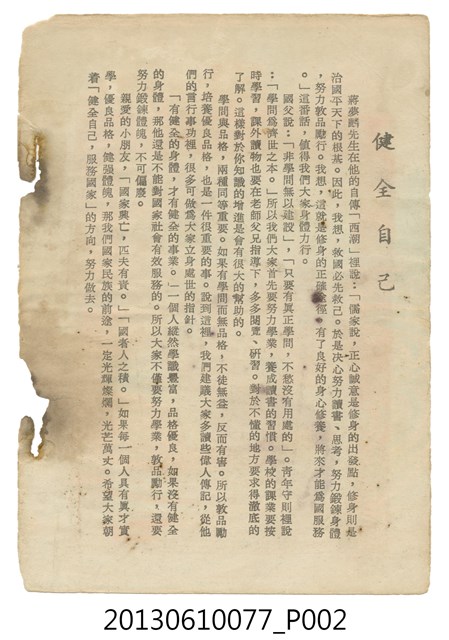 健全自己
蔣夢麟先生在他的自傳「西潮」裡說：「儒家說，正心誠意是修身的出發點，修身則是
治國平天下的根基。因此，我想，救國必先救己。於是决心努力讀書、思考，努力鍛鍊身體
，努力敦品勵行。我想，這就是修身的正確途徑。有了良好的身心修養，將來才能爲國服務
。」這番話，值得我們大家身體力行。
國父說：「非學問無以建設」，「只要有眞正學問，不愁沒有用處的」。靑年守則裡說
：「學問爲濟世之本。」所以我們大家首先要努力學業，養成讀書的習慣。學校的課業要按
時學習，課外讀物也要在老師父兄指導下，多多閱覽、硏習。對於不懂的地方要求得徹底的
了解。這樣對於你知識的增進是會有很大的幫助的。
學問與品格，兩種同等重要。如果有學問而無品格，不徒無益，反而有害。所以敦品勵
行，培養優良品格，也是一件很重要的事。說到這裡，我們建議大家多讀些偉人傳記，從他
們的言行事功裡，很多可做爲大家立身處世的指針。
「有健全的身體，才有健全的事業。」一個人縱然學識豐富，品格優良，如果沒有健全
的身體，那他還是不能對國家社會有效服務的。所以大家不僅要努力學業，敦品勵行，還要
努力鍛鍊體魄，不可偏廢。
親愛的小朋友，「國家興亡，匹夫有責。」「國者人之積。」如果每一個人具有眞才實
學，優良品格，健強體魄，那我們國家民族的前途，一定光輝燦爛，光芒萬丈。希望大家朝
着「健全自己，服務國家」的方向，努力做去。
20130610077_P002